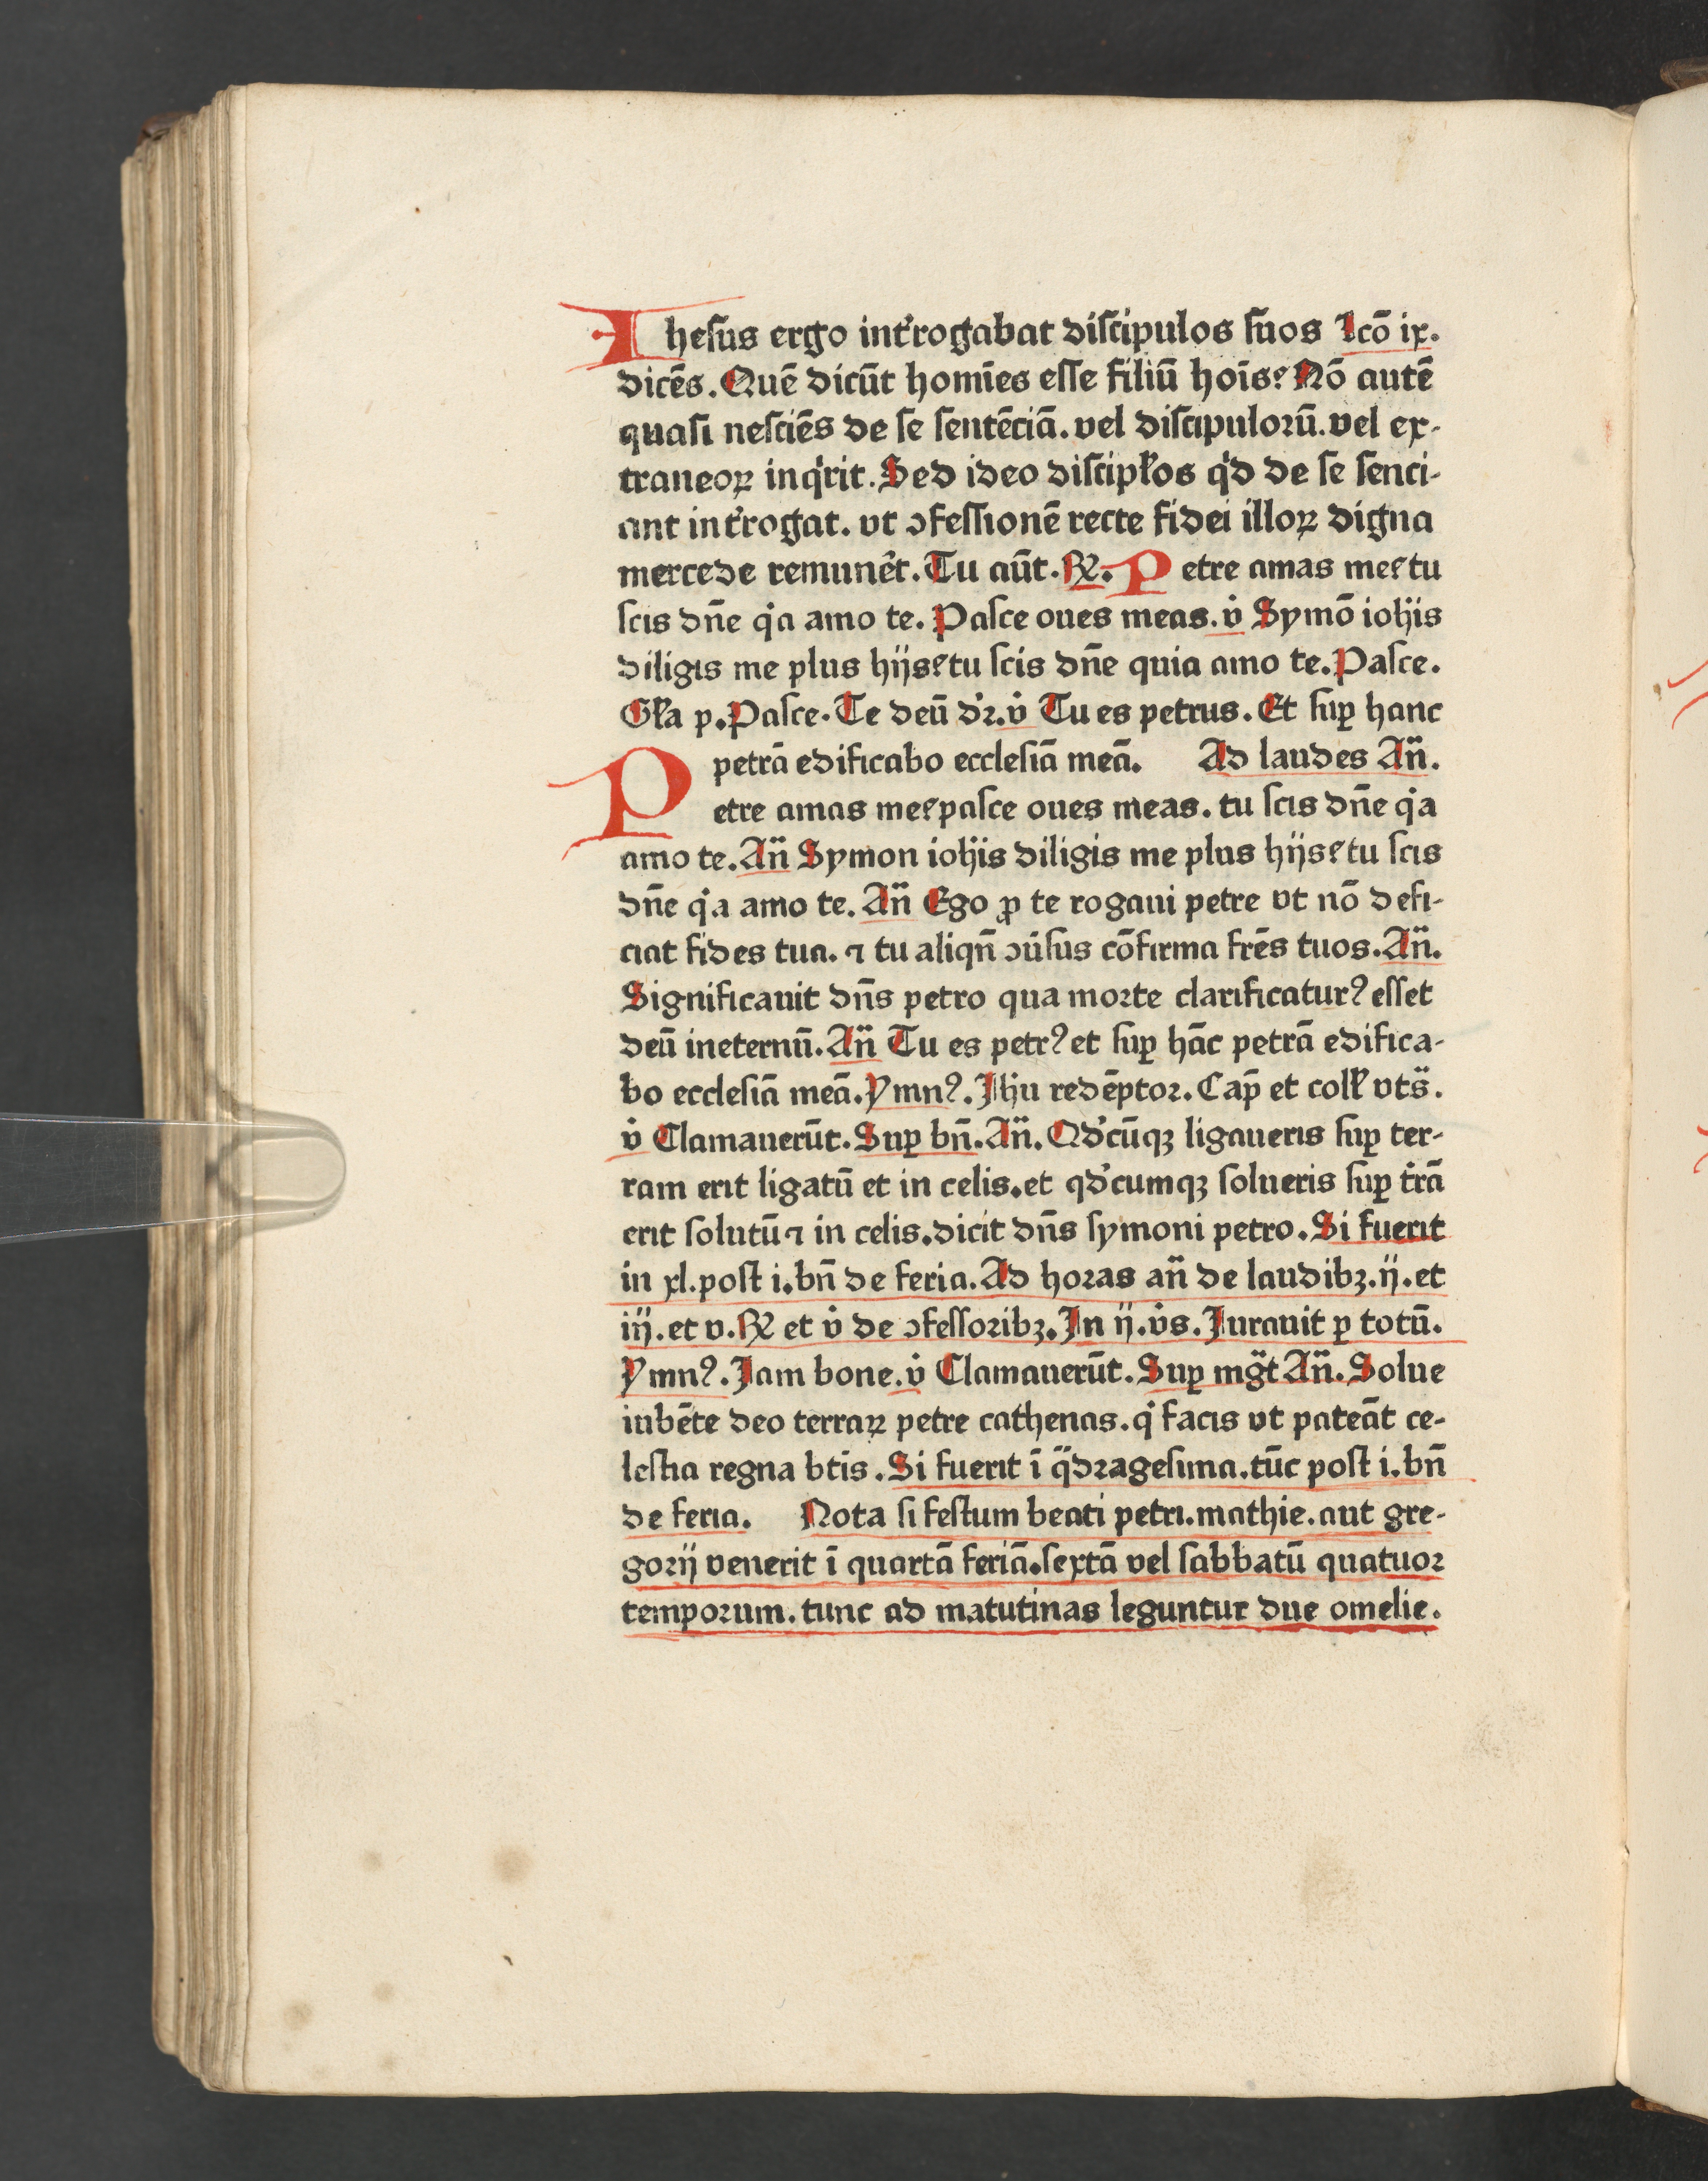 Ihesus ergo int͛rogabat discipulos suos Lcō ix.
dicēs. Quē dicūt homīes esse filiū hoīs? Nō autē
quasi nesciēs de se sentēciā. vel discipulorū. vel ex-
traneoꝝ inq͛rit. Sed ideo discipłos qͥd de se senci-
ant int͛rogat. vt ↄfessionē recte fidei illoꝝ digna
mercede remunēt. Tu aūt. ℟. Petre amas me? tu
scis dn̄e qͥa amo te. Pasce oues meas. v̇ Symō ioħis
diligis me plus hijs? tu scis dn̄e quia amo te. Pasce.
Gła p. Pasce. Te deū dꝛ͛. v̇ Tu es petrus. Et suꝑ hanc
petrā edificabo ecclesiā meā. Ad laudes An̄.
Petre amas me? pasce oues meas. tu scis dn̄e qͥa
amo te. An̄ Symon ioħis diligis me plus hijs? tu scis
dn̄e qͥa amo te. An̄ Ego ꝓ te rogaui petre vt nō defi-
ciat fides tua. ⁊ tu aliqn̄ ↄu͛sus cōfirma fr̄es tuos. An̄.
Significauit dn̄s petro qua morte clarificaturꝰ esset
deū ineternū. An̄ Tu es petrꝰ et suꝑ hāc petrā edifica-
bo ecclesiā meā. Ymnꝰ. Jħu redēptor. Cap̄ et colł vts̄.
v̇ Clamauerūt. Suꝑ bn̄. An̄. Qd͛cūqꝫ ligaueris suꝑ ter-
ram erit ligatū et in celis. et qd͛cumqꝫ solueris suꝑ t͛rā
erit solutū ⁊ in celis. dicit dn̄s symoni petro. Si fuerit
in xl. post i. bn̄ de feria. Ad horas an̄ de laudibꝫ. ij. et
iij. et v. ℟ et v̇ de ↄfessoribꝫ. Jn ij. v̇s. Jurauit ꝑ totū.
Ymnꝰ. Jam bone. v̇ Clamauerūt. Suꝑ mg̃t An̄. Solue
iubēte deo terraꝝ petre cathenas. qͥ facis vt pateāt ce-
lestia regna bt̄is. Si fuerit ī qᷓdragesima. tūc post i. bn̄
de feria. Nota si festum beati petri. mathie. aut gre-
gorij venerit ī quartā feriā. sextā vel sabbatū quatuor
temporum. tunc ad matutinas leguntur due omelie.